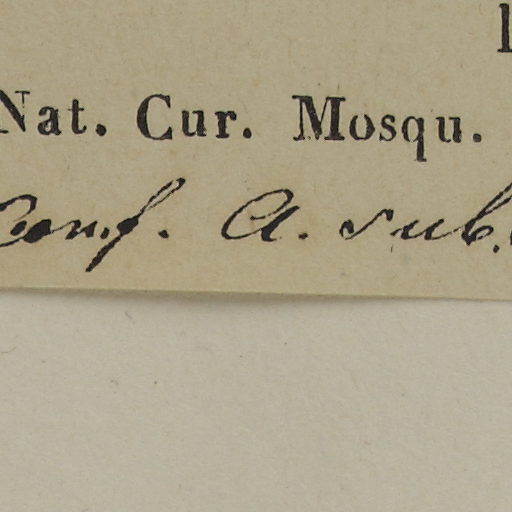 Nat. Cur. Mosqu.
Conf. A. sub.